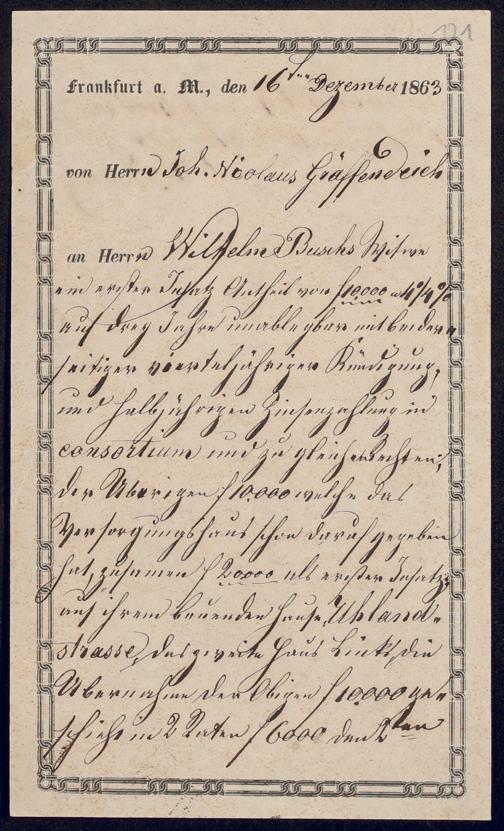 121
Frankfurt a. M., den 16ten Dezember 1863
von Herrn Joh. Nicolaus Gräffendeich
an Herrn Wilhelm Buschs Witwe
ein erster Insatz Antheil von f 10000 a 4 1/4 %
auf drey Jahre unablegbar mit beider
seitiger vierteljähriger Kündigung,
und halbjährigen Zinsenzahlung in
consortium und zu gleichen Rechten,
der Uberigen f 10.000 welche das
Versorgungshaus schon darauf gegeben
hat, zusamen f 20000 als erster Insatz,
auf ihrem bauenden Hause, Uhland-
strasse, das zweite Haus Links, die
Übernahme der Obigen f 10.000 ge-
schieht in 2 Raten f 6000 den 2ten